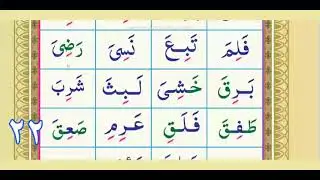 فَلِمَ تَبِعَ نَسِىَ رَضِىَ
بَرِقَ خَشِىَ لَبِثَ شَرِبَ
طَفِقَ فَلَقِ عَرِمِ صَعِقَ
٢٢